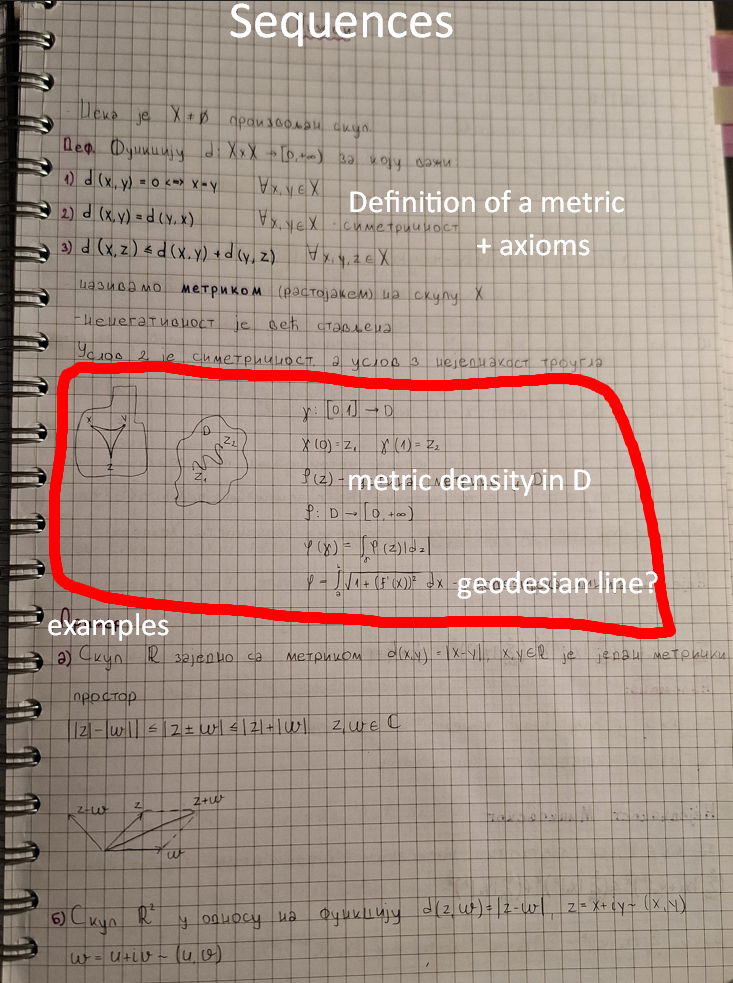 Sequences
Нека је X ≠ ∅ произвољан скуп.
Деф. Функцију d: X×X → [0,+∞) за коју важи:
1) d(x,y) = 0 <=> x=y ∀x,y∈X
2) d(x,y) = d(y,x) ∀x,y∈X - симетричност
3) d(x,z) ≤ d(x,y) + d(y,z) ∀x,y,z∈X
Definition of a metric
+ axioms
називамо метриком (растојањем) на скупу X
- ненегативност је већ стављена
Услов 2 је симетричност а услов 3 неједнакост троугла
x y
z
D
z₂
z₁
γ: [0,1] → D
γ(0) = z₁ γ(1) = z₂
ρ(z) -
metric density in D
ρ: D → [0,+∞)
φ(γ) = ∫γ ρ(z)|dz|
φ = ∫ √1+(f'(x))² dx -
geodesian line?
examples
а) Скуп ℝ заједно са метриком d(x,y) = |x-y|, x,y∈ℝ је један метрички
простор
||z|-|w|| ≤ |z ± w| ≤ |z|+|w| z,w ∈ ℂ
z-w z z+w
w
б) Скуп ℝ² у односу на функцију d(z,w) = |z-w|, z = x+iy ~ (x,y)
w = u+iv ~ (u,v)